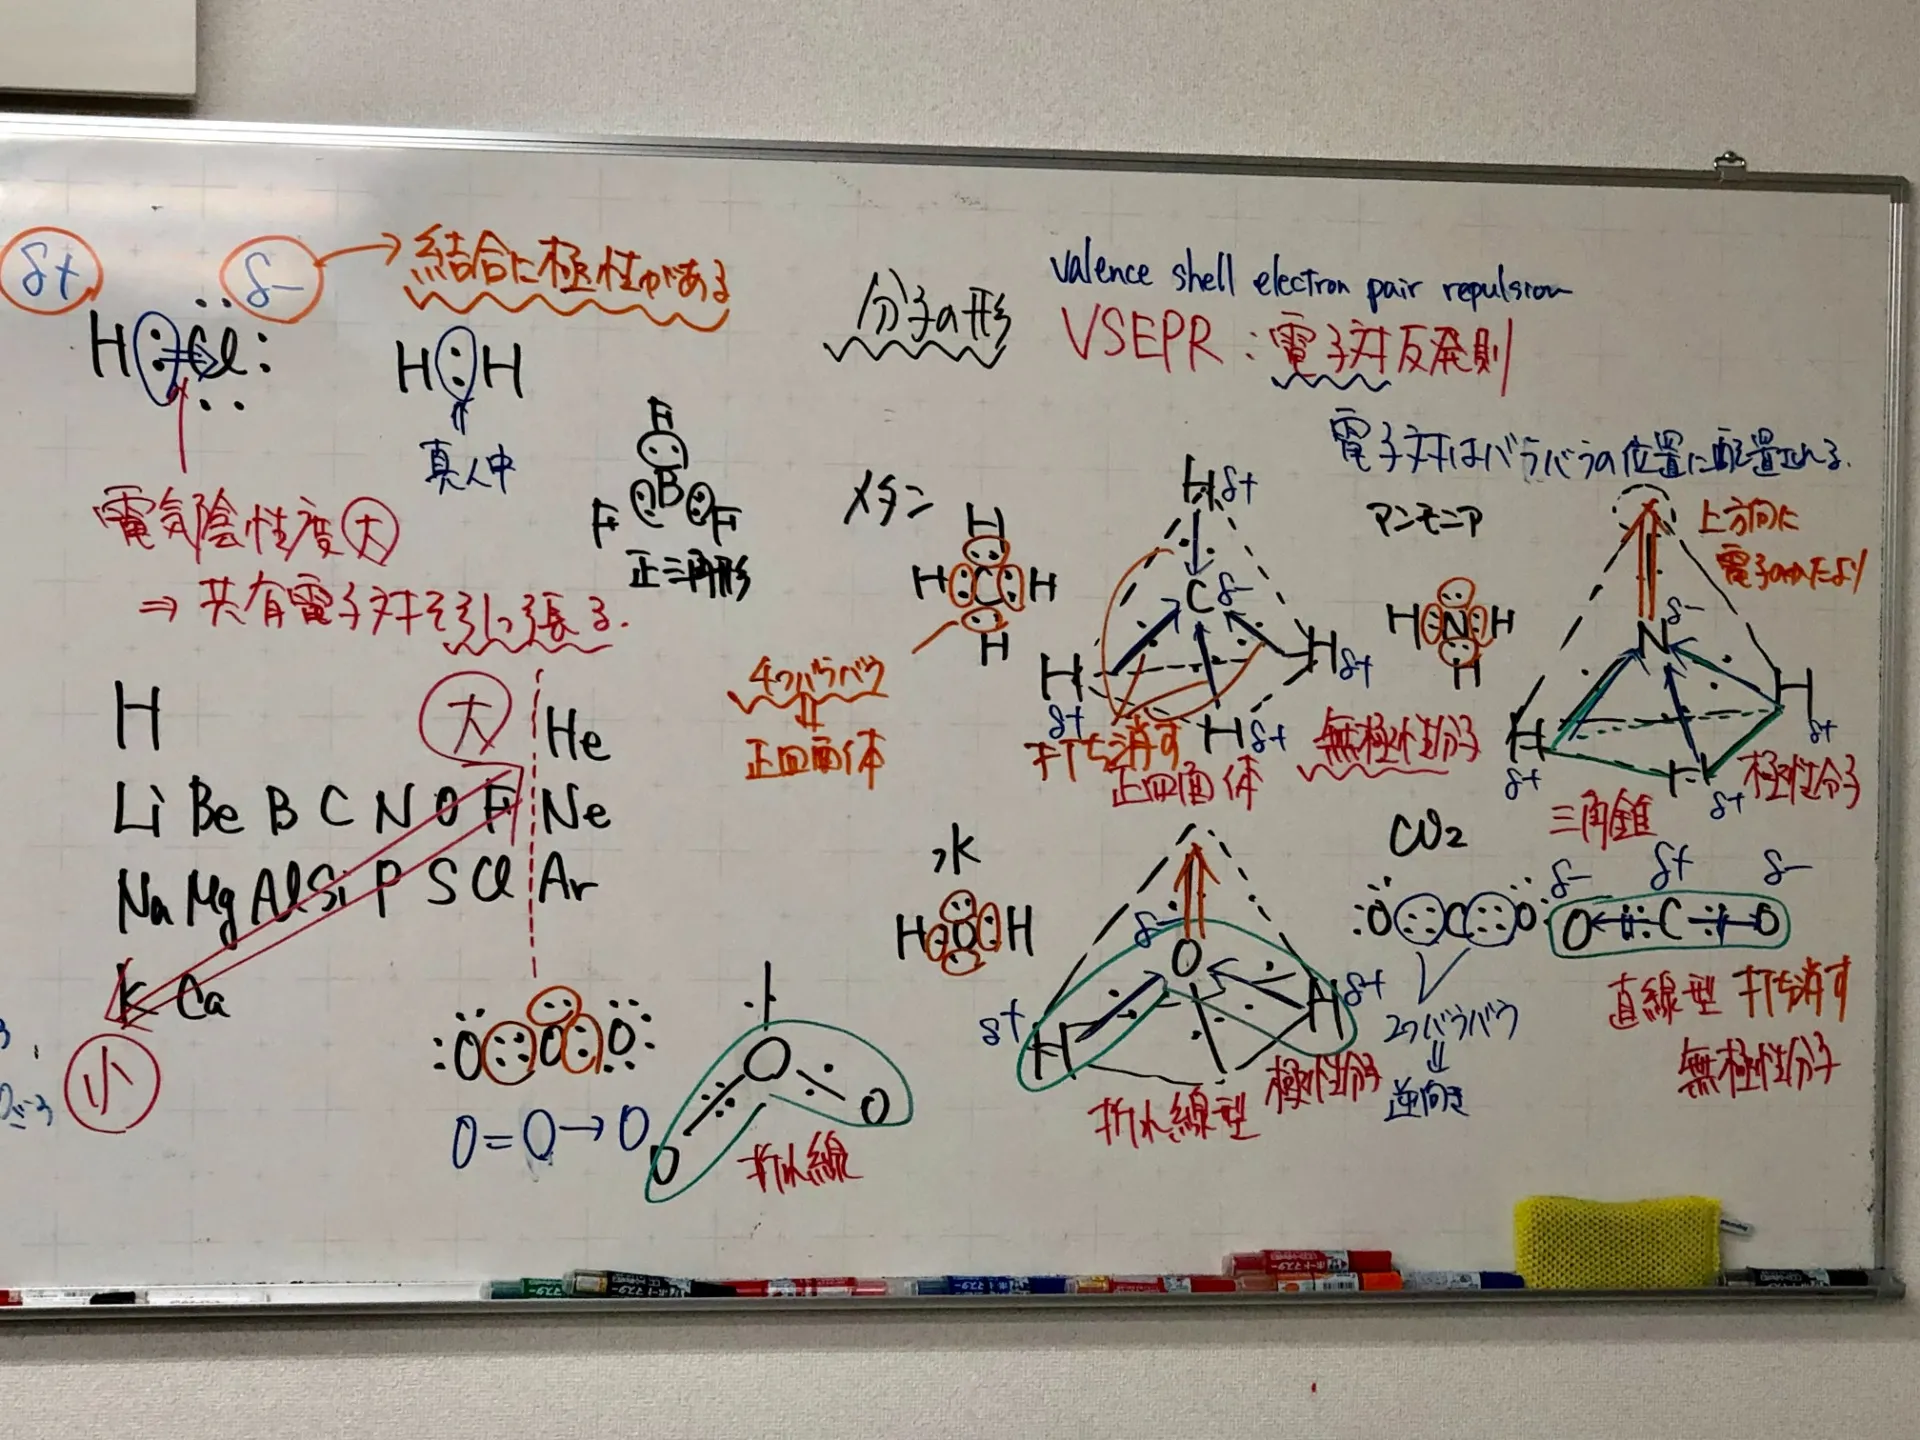 δ+
δ-
結合に極性がある
H:Cl:
H:H
真ん中
電気陰性度大
⇒共有電子対を引っ張る.
F
F B F
正三角形
分子の形
valence shell electron pair repulsion
VSEPR:電子対反発則
電子対はバラバラの位置に配置される.
メタン
H
H:C:H
H
4つバラバラ
⇓
正四面体
H δ+
C δ-
H δ+
H δ+
H δ+
打ち消す
正四面体
無極性分子
アンモニア
H:N:H
H
上方向に
電子のかたより
N δ-
H δ+
H δ+
H δ+
極性分子
三角錐
H 大 He
Li Be B C N O F Ne
Na Mg Al Si P S Cl Ar
K Ca
小
:O::O:O:
O=O→O
O
O O
折れ線
水
H:O:H
δ-
O
H δ+
δ+ H
折れ線型
極性分子
CO2
:O::C::O:
2つバラバラ
⇓
逆向き
δ- δ+ δ-
O C O
直線型 打ち消す
無極性分子